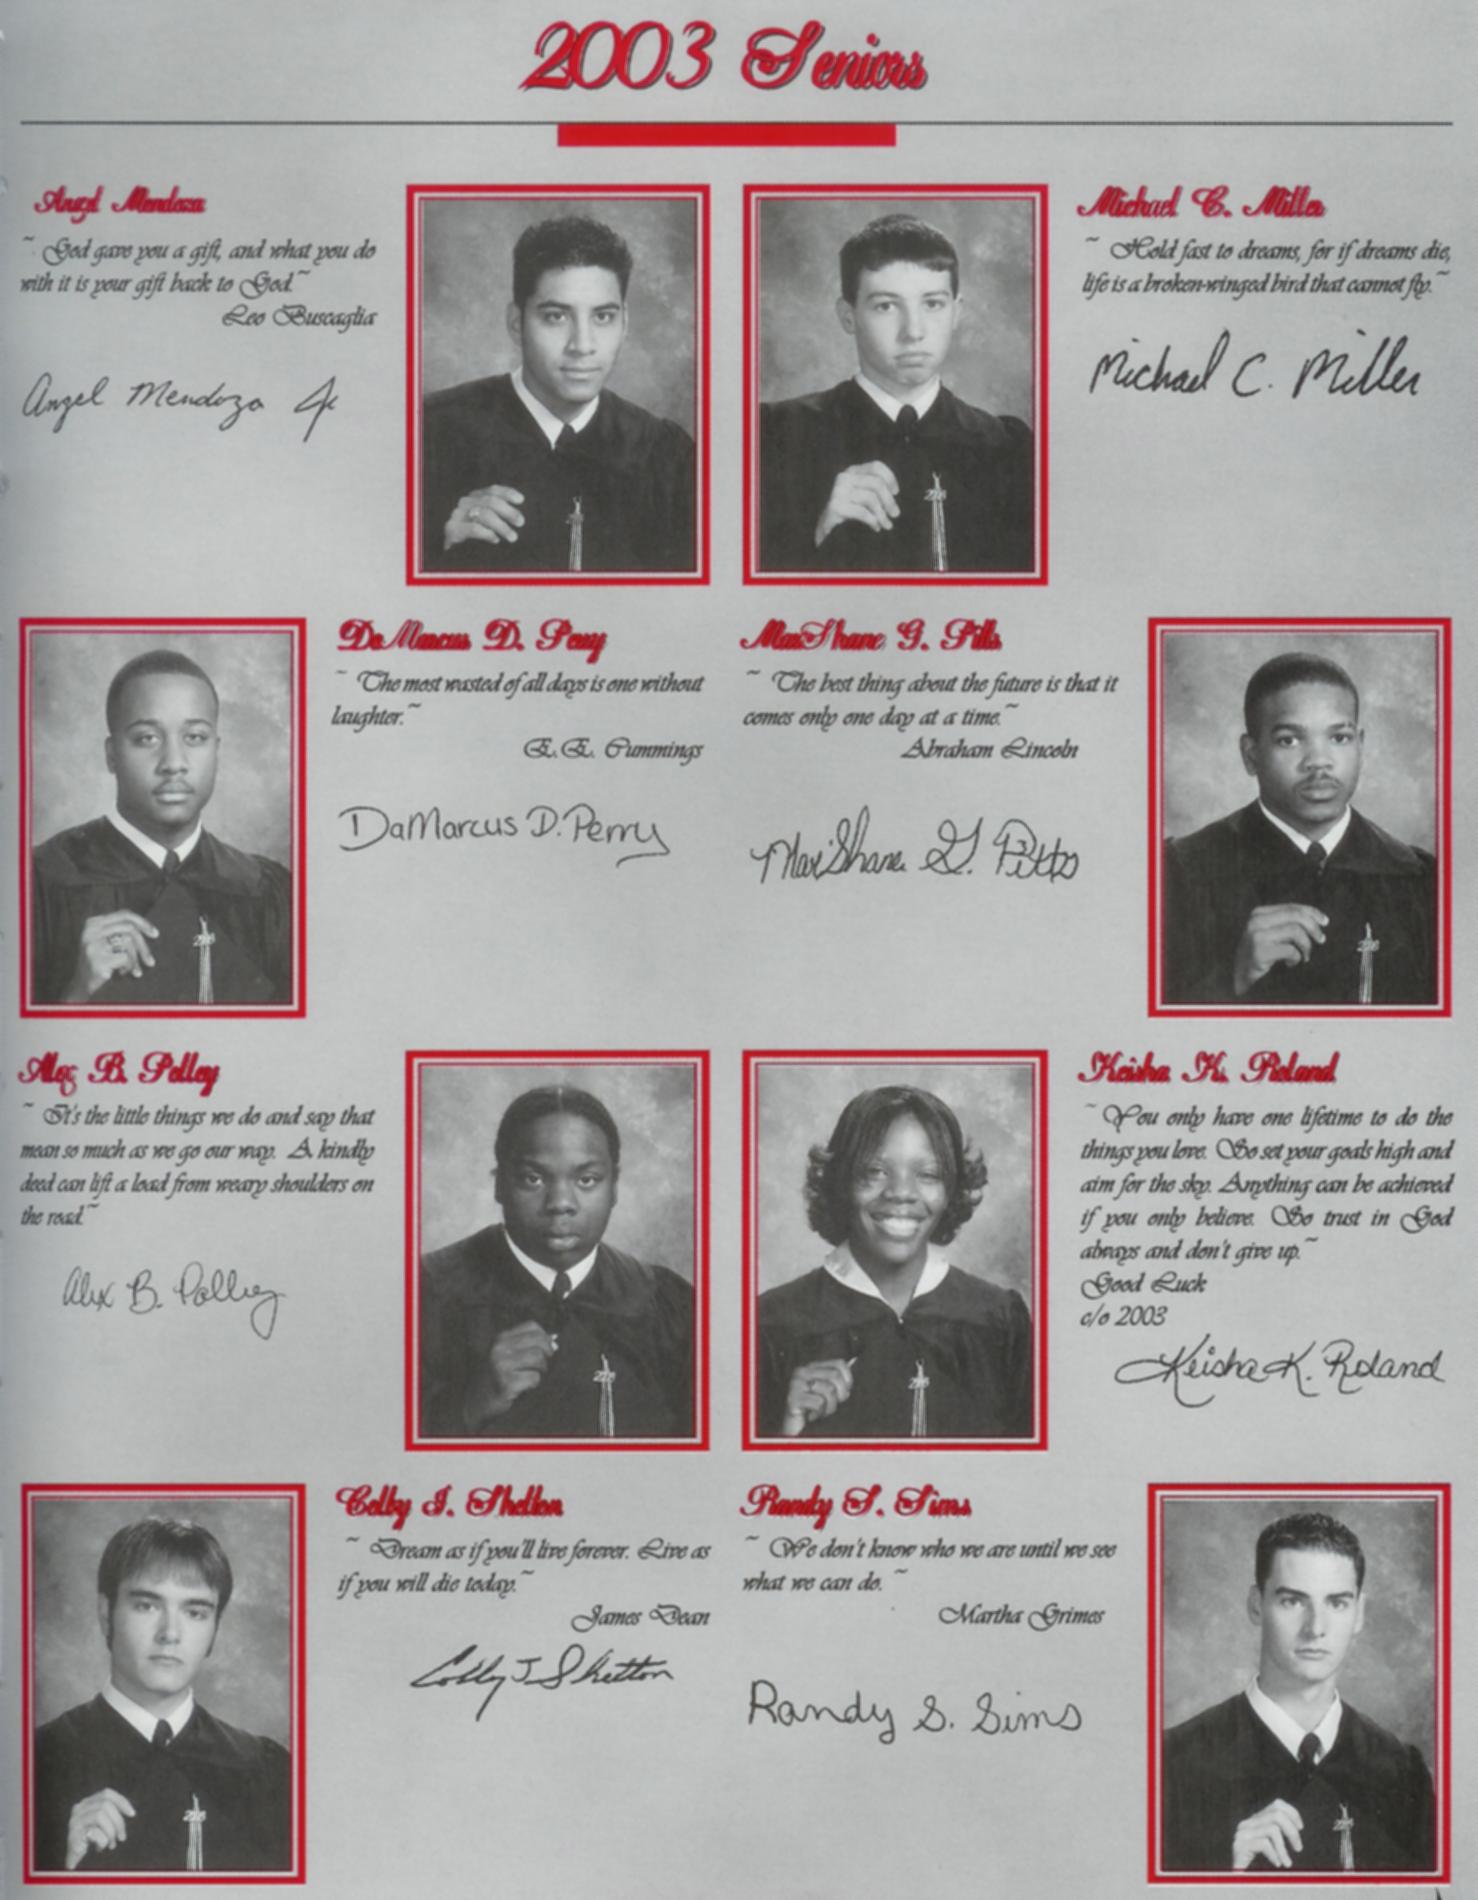 2003 Seniors
Angel Mendoza
~ God gave you a gift, and what you do
with it is your gift back to God.~
Leo Buscaglia
Angel Mendoza Jr
Michael C. Miller
~ Hold fast to dreams, for if dreams die,
life is a broken-winged bird that cannot fly.~
Michael C. Miller
DaMarcus D. Perry
~ The most wasted of all days is one without
laughter.~
E.E. Cummings
DaMarcus D. Perry
MaxShane G. Pitts
~ The best thing about the future is that it
comes only one day at a time.~
Abraham Lincoln
Max'Shane G. Pitts
Alex B. Polley
~ It's the little things we do and say that
mean so much as we go our way. A kindly
deed can lift a load from weary shoulders on
the road.~
Alex B. Polley
Keisha K. Roland
~ You only have one lifetime to do the
things you love. So set your goals high and
aim for the sky. Anything can be achieved
if you only believe. So trust in God
always and don't give up.~
Good Luck
c/o 2003
Keisha K. Roland
Colby J. Shelton
~ Dream as if you'll live forever. Live as
if you will die today.~
James Dean
Colby J Shelton
Randy S. Sims
~ We don't know who we are until we see
what we can do. ~
Martha Grimes
Randy S. Sims